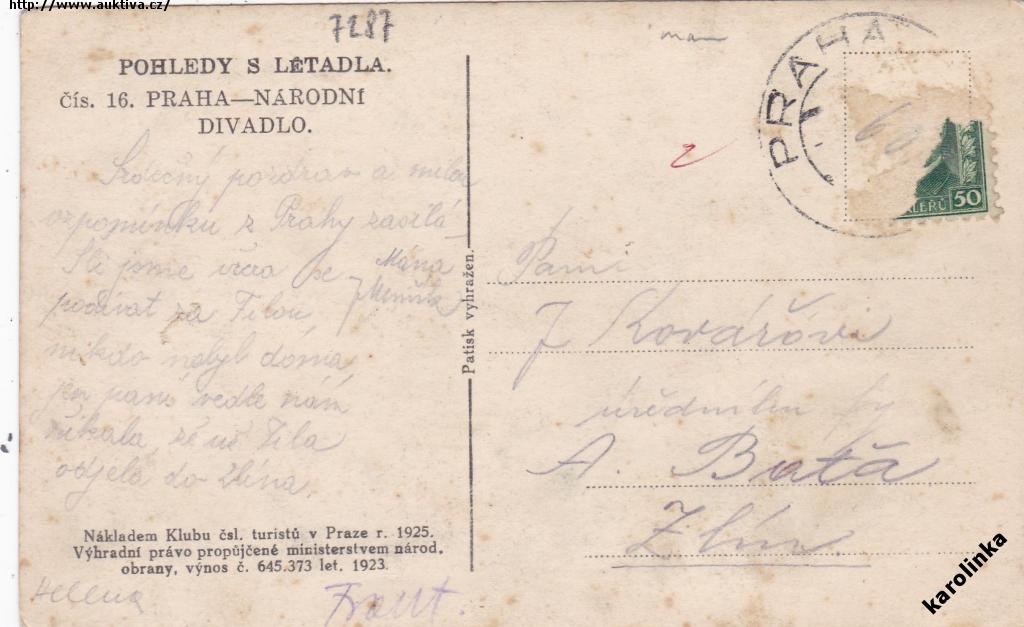 http://www.auktiva.cz/
7287
POHLEDY S LETADLA.
čís. 16. PRAHA—NÁRODNÍ
DIVADLO.
Srdečný pozdrav a milou
vzpomínku z Prahy zasílá
Mána
Šli jsme včera se
podívat za Filou
nikdo nebyl doma,
jen paní vedle nám
říkala, že už Fila
odjela do Zlína.
Nákladem Klubu čsl. turistů v Praze r. 1925.
Výhradní právo propůjčené ministerstvem národ.
obrany, výnos č. 645.373 let. 1923.
Helena
Frant.
Patisk vyhražen.
PRAHA
60
LÉŘŮ 50
Paní
J Kovářovi
fy
A. Baťa
Zlín
karolinka